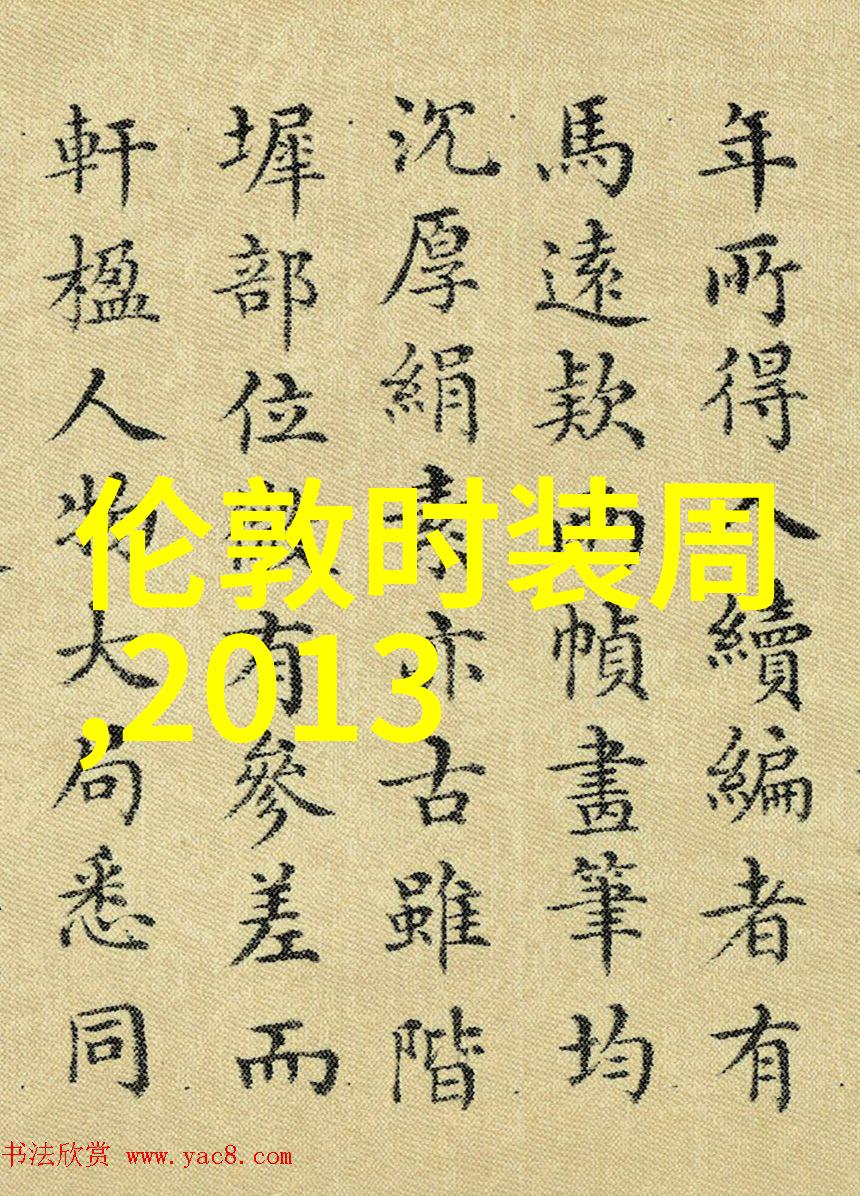 年所得續編者有
馬遠款幀畫筆均
沉厚絹素亦古雖階
墀部位微有參差而
軒楹人物大局悉同
伦敦时装周
,2013
书法欣赏 www.yac8.com